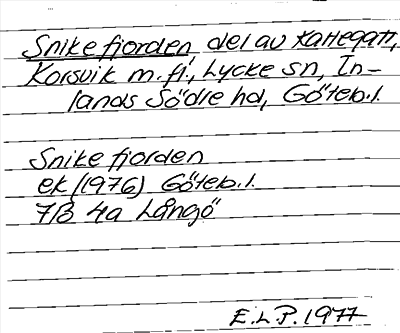 Snikefjorden, del av Kattegatt,
Korsvik m.fl., Lycke sn, In-
lands Södre hd, Göteb.l.
Snikefjorden
ek (1976) Göteb.l.
7B 4a Långö
E.L.P. 1977